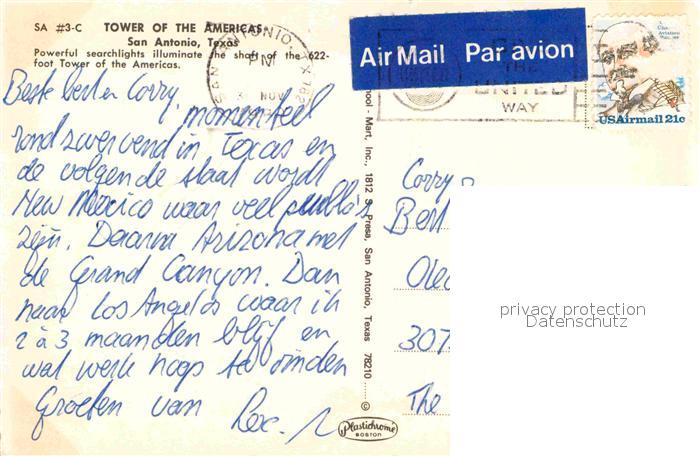 SA #3-C TOWER OF THE AMERICAS,
San Antonio, Texas
Powerful searchlights illuminate the shaft of the 622-
foot Tower of the Americas.
Beste bert en Corry, momenteel
rond zwervend in Texas en
de volgende staat wordt
New Mexico waar veel pueblo's
zijn. Daarna Arizona met
de Grand Canyon. Dan
naar Los Angelos waar ik
2 à 3 maanden blijf en
wat werk hoop te vinden
Groeten van
Mart, Inc., 1812 S. Presa, San Antonio, Texas 78210
©
Plastichrome
BOSTON
Air Mail Par avion
NOV
THE
UNITED
WAY
USAirmail 21c
Corry
Bert
307
The
privacy protection
Datenschutz